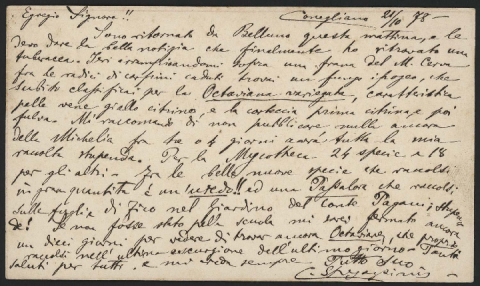 Egregio Signore!! Conegliano 21/10 78-
Sono ritornato da Belluno questa mattina, e le
devo dare la bella notizia che finalmente ho ritrovato una
tuberacea. Ieri arrampicandomi sopra una frana del M. Serva
fra le radici di certi pini caduti trovai un fungo ipogeo, che
subito classificai per la Octaviana variegata, caratteristica
pelle vene giallo citrino, e la corteccia prima citrina e poi
fulva. Mi raccomando di non pubblicare nulla ancora
della Michelia fra 3 o 4 giorni avrà tutta la mia
raccolta stupenda. Per la Mycotheca 24 specie a 18
per gli altri - fra le belle nuove specie che raccolsi
in gran quantità è un'uredo!! ed una Pestalozia che raccolsi
sulle foglie di Fico nel Giardino del Conte Pagani, stupen
de! Se non fosse stato pella scuola mi sarei fermato ancora
un dieci giorni per vedere di trovar ancora Octaviane, che proprio
raccolsi nell'ultima escursione dell'ultimo giorno. Tanti
saluti per tutti, e mi creda sempre Tutto Suo
C. Spegazzini